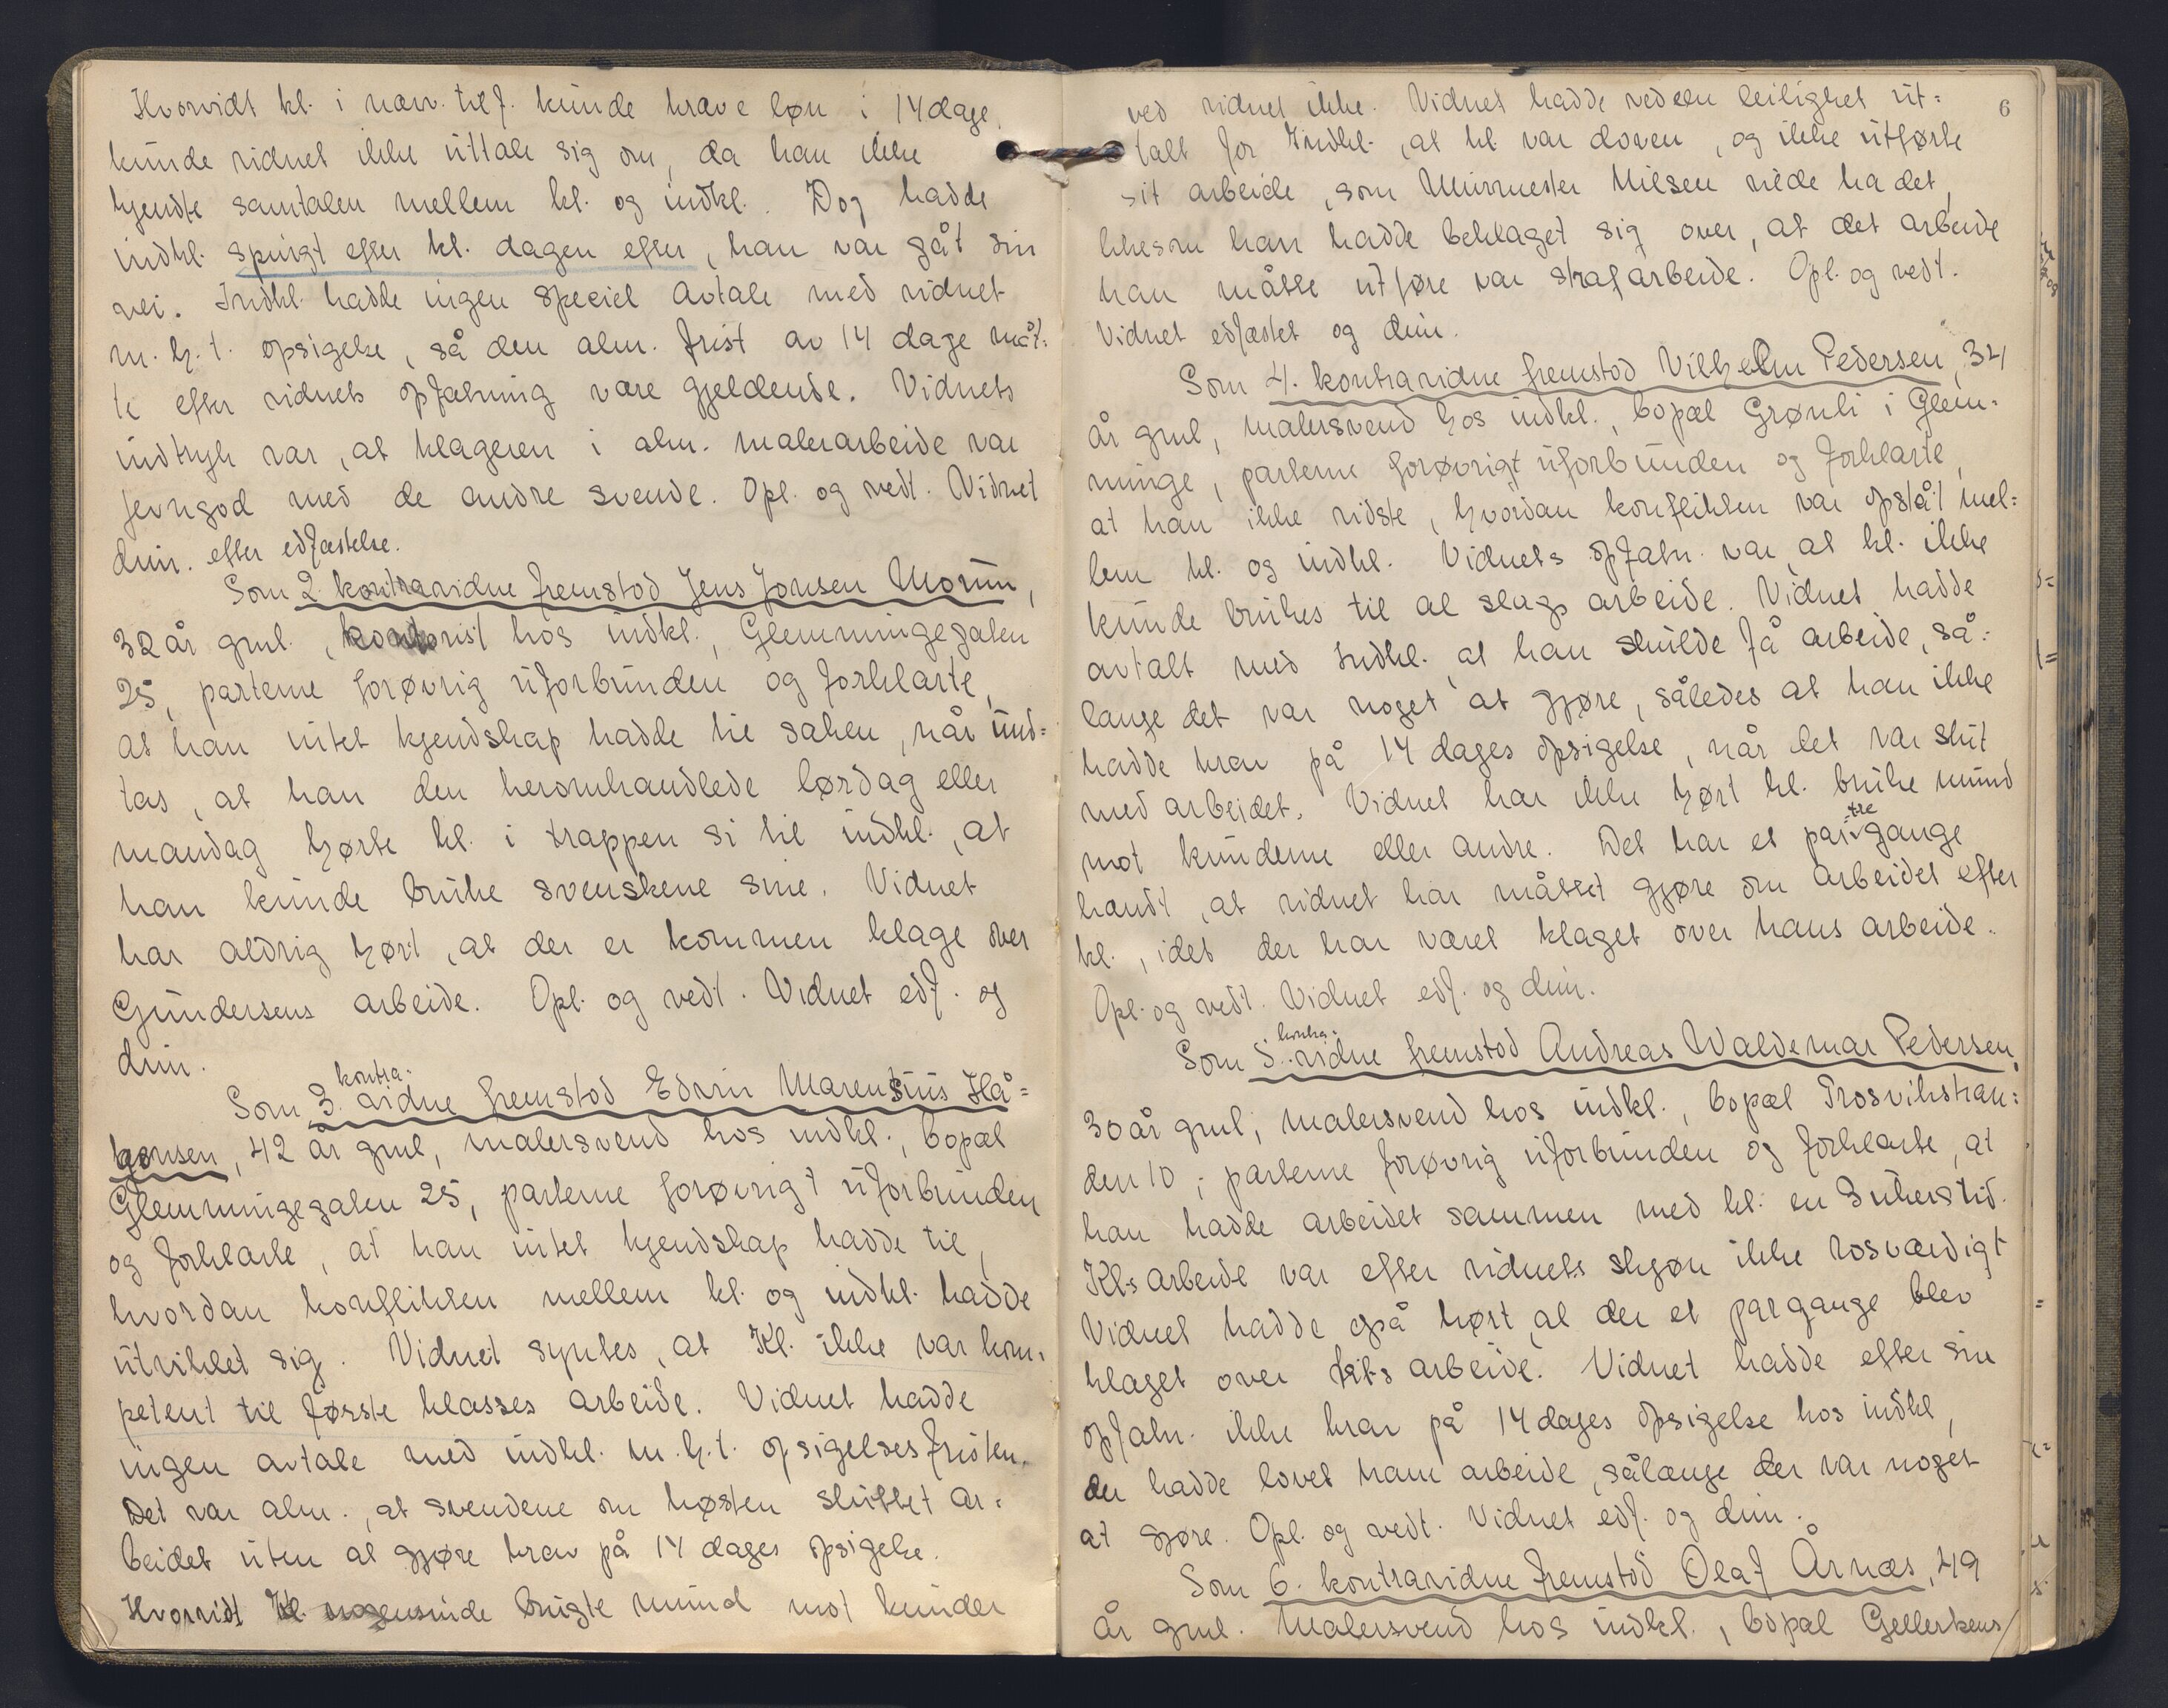 Hvorvidt kl. i nærv. tilf. kunde kræve løn i 14 dage,
kunde vidnet ikke uttale sig om, da han ikke
kjendte samtalen mellem kl. og indkl. Dog hadde
indkl. spurgt efter kl. dagen efter, han var gåt sin
vei. Indkl. hadde ingen speciel avtale med vidnet
m. h. t. opsigelse, så den alm. frist av 14 dage måt=
te efter vidnets opfatning være gjeldende. Vidnets
indtryk var, at klageren i alm. malerarbeide var
jevngod med de andre svende. Opl. og vedt. Vidnet
dim. efter edfæstelse.
Som 2. kontravidne fremstod Jens Jonsen Moum,
32 år gml., kontorist hos indkl., Glemmingegaten
25, parterne forøvrig uforbunden og forklarte,
at han intet kjendskap hadde til saken, når und=
tas, at han den heromhandlede lørdag eller
mandag hørte kl. i trappen si til indkl., at
han kunde bruke svenskene sine. Vidnet
har aldrig hørt, at der er kommen klage over
Gundersens arbeide. Opl. og vedt. Vidnet edf. og
dim.
Som 3. kontra- vidne fremstod Edvin Marensius Hå=
konsen, 42 år gml, malersvend hos indkl., bopæl
Glemmingegaten 25, parterne forøvrigt uforbunden
og forklarte, at han intet kjendskap hadde til,
hvordan konflikten mellem kl. og indkl. hadde
utviklet sig. Vidnet syntes, at Kl. ikke var kom=
petent til første klasses arbeide. Vidnet hadde
ingen avtale med indkl. m.h.t. opsigelsesfristen.
Det var alm., at svendene om høsten sluttet ar=
beidet uten at gjøre krav på 14 dages opsigelse.
Hvorvidt Kl. nogensinde brugte mund mot kunder
6
ved vidnet ikke. Vidnet hadde ved en leilighet ut=
talt for Indkl., at kl. var doven, og ikke utførte
sit arbeide, som Murmester Nilsen vilde ha det,
likesom han hadde beklaget sig over, at det arbeide
han måtte utføre var strafarbeide. Opl. og vedt.
Vidnet edfæstet og dim.
Som 4. kontravidne fremstod Vilhelm Pedersen, 34
år gml, malersvend hos indkl., bopæl Grønli i Glem=
minge, parterne forøvrigt uforbunden og forklarte,
at han ikke vidste, hvordan konflikten var opståt mel=
lem kl. og indkl. Vidnets opfatn. var, at kl. ikke
kunde brukes til al slags arbeide. Vidnet hadde
avtalt med Indkl., at han skulde få arbeide, så=
længe det var noget at gjøre, således at han ikke
hadde krav på 14 dages opsigelse, når det var slut
med arbeidet. Vidnet har ikke hørt kl. bruke mund
mot kunderne eller andre. Det har et par-tre gange
hændt, at vidnet har måttet gjøre om arbeidet efter
kl., idet der har været klaget over hans arbeide.
Opl. og vedt. Vidnet edf. og dim.
Som 5. kontra- vidne fremstod Andreas Waldemar Pedersen,
30 år gml; malersvend hos indkl., bopæl Trosvikstran=
den 10; parterne forøvrig uforbunden og forklarte, at
han hadde arbeidet sammen med kl. en 3 ukers tid.
Kl.s arbeide var efter vidnets skjøn ikke rosværdigt
Vidnet hadde også hørt, at der et par gange blev
klaget over kl.s arbeide. Vidnet hadde efter sin
opfatn. ikke krav på 14 dages opsigelse hos indkl,
der hadde lovet ham arbeide, sålænge der var noget
at gjøre. Opl. og vedt. Vidnet edf. og dim.
Som 6. kontravidne fremstod Olaf Årnæs, 49
år gml. Malersvend hos indkl., bopæl Gellerkens